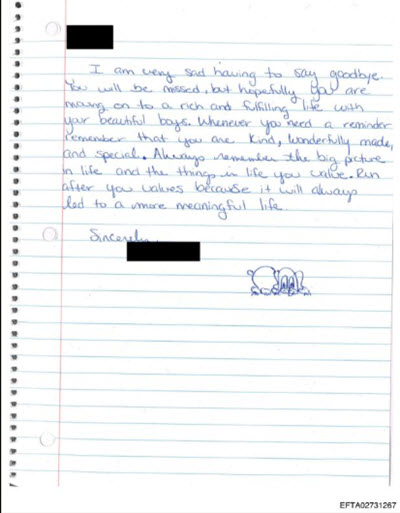 I am very sad having to say goodbye.
You will be missed, but hopefully you are
moving on to a rich and fulfilling life with
your beautiful boys. Whenever you need a reminder
remember that you are kind, wonderfully made,
and special. Always remember the big picture
in life and the things in life you value. Run
after you values because it will always
led to a more meaningful life.
Sincerely,
EFTA02731267